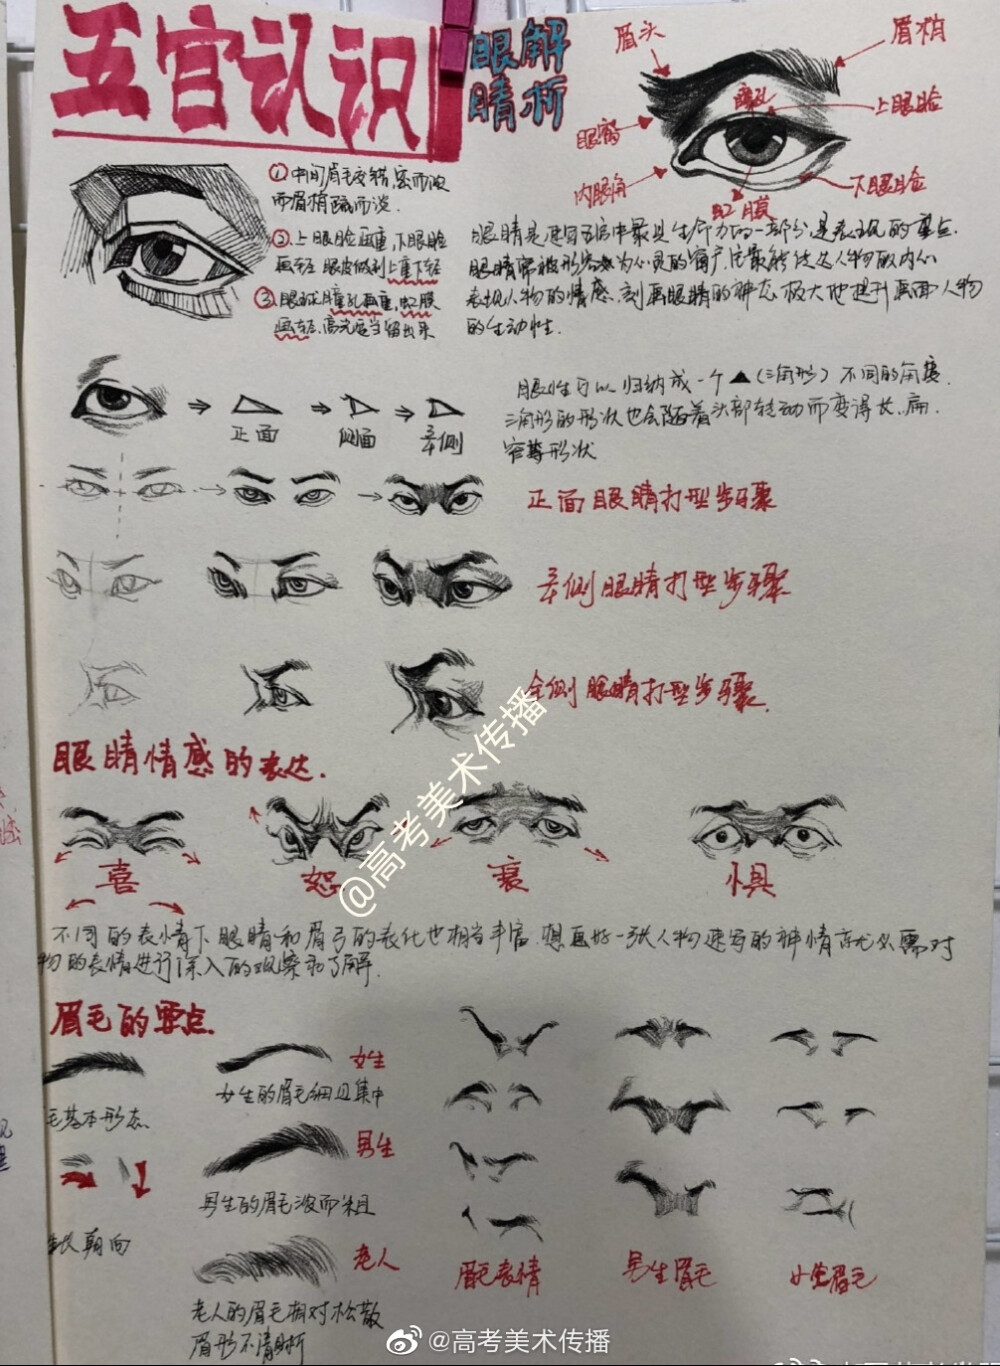 五官认识
眼睛
解析
眉头
眉梢
瞳孔
上眼睑
眼窝
内眼角
虹膜
下眼睑
①中间眉毛交错,密而浓
而眉梢疏而淡.
②上眼睑画重,下眼睑
画轻 眼皮做到上重下轻
③眼球瞳孔画重,虹膜
画轻.高光适当留出来
眼睛是速写五官中最具生命力的一部分,是表现的重点.
眼睛常被形容为心灵的窗户,它最能传达人物的内心
表现人物的情感,刻画眼睛的神态,极大地提升画面人物
的生动性.
眼睛可以归纳成一个▲(三角形)不同的角度.
三角形的形状也会随着头部转动而变得长.扁.
窄等形状
正面
侧面
半侧
正面眼睛打型步骤
半侧眼睛打型步骤
全侧眼睛打型步骤.
眼睛情感的表达.
喜
怒
哀
惧
不同的表情下眼睛和眉弓的表化也相当丰富.想画好一张人物速写的神情就必需对
物的表情进行深入的观察和了解.
眉毛的要点.
毛基本形态
朝向
女生
女生的眉毛细且集中
男生
男生的眉毛浓而粗
老人
老人的眉毛相对松散
眉形不清晰
眉毛表情
男生眉毛
女生眉毛
@高考美术传播
@高考美术传播